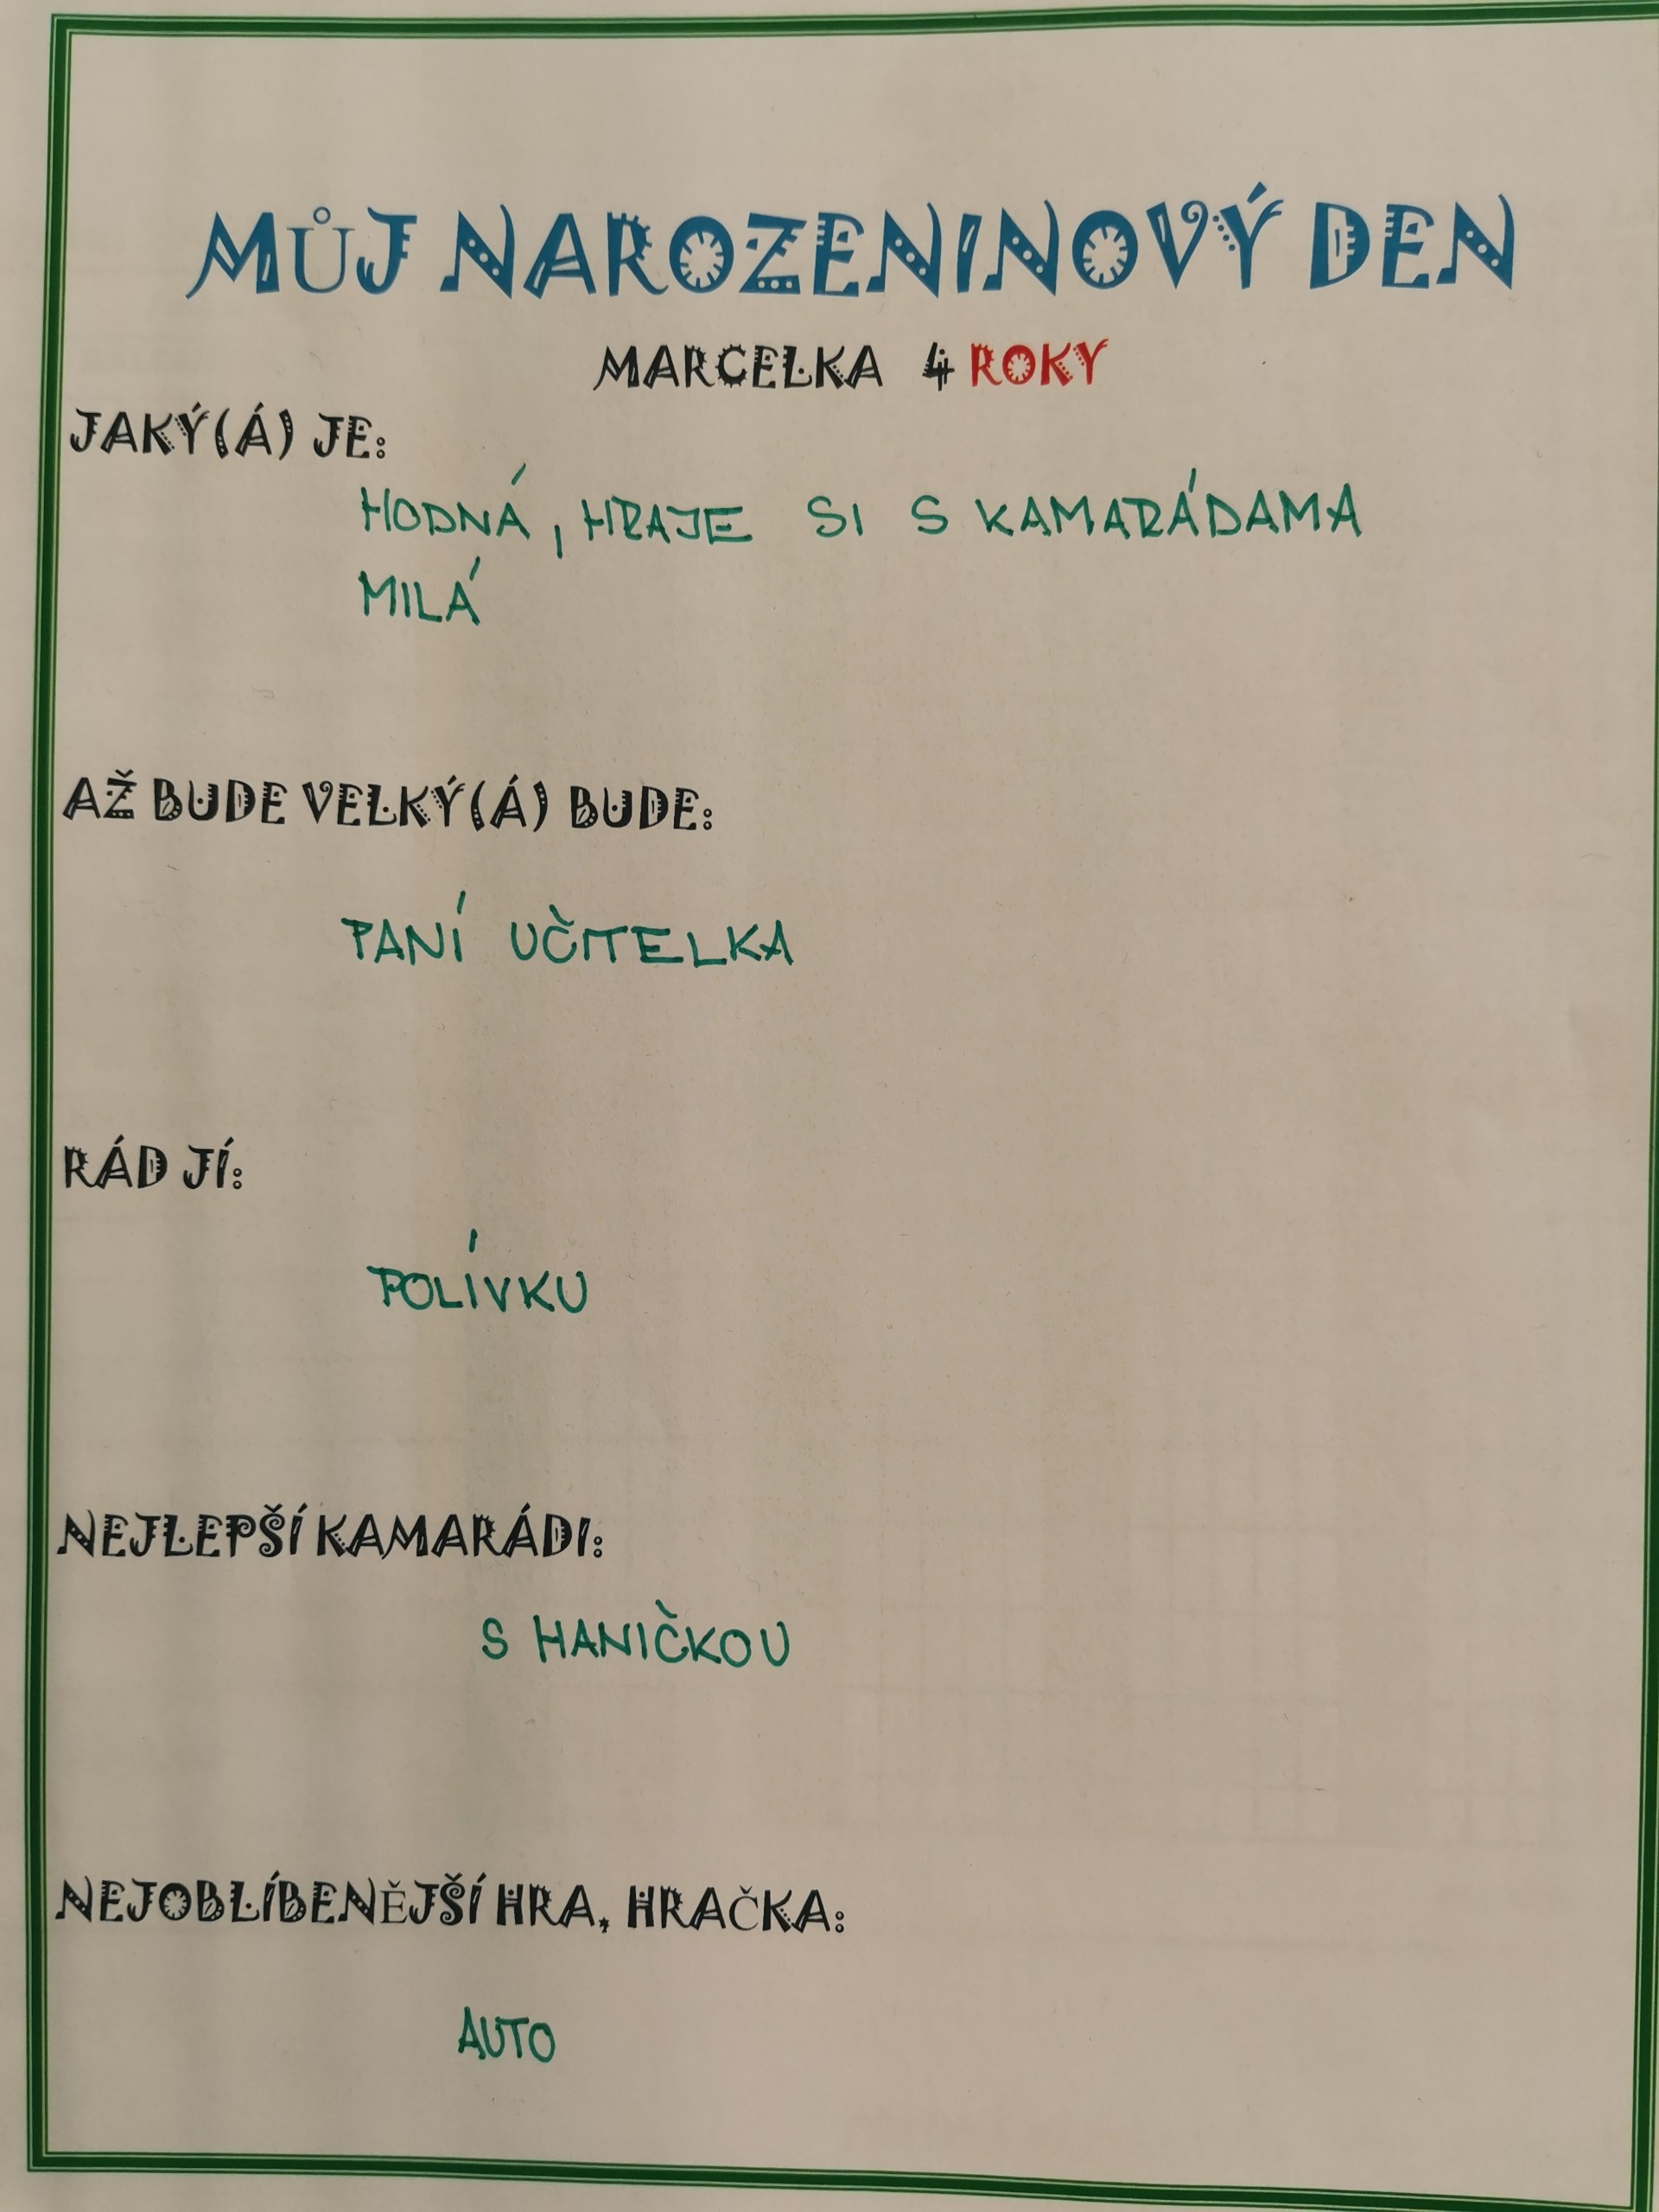 MŮJ NAROZENINOVÝ DEN
MARCELKA 4 ROKY
JAKÝ(Á) JE:
HODNÁ, HRAJE SI S KAMARÁDAMA
MILÁ
AŽ BUDE VELKÝ(Á) BUDE:
PANÍ UČITELKA
RÁD JÍ:
POLÍVKU
NEJLEPŠÍ KAMARÁDI:
S HANIČKOU
NEJOBLÍBENĚJŠÍ HRA, HRAČKA:
AUTO